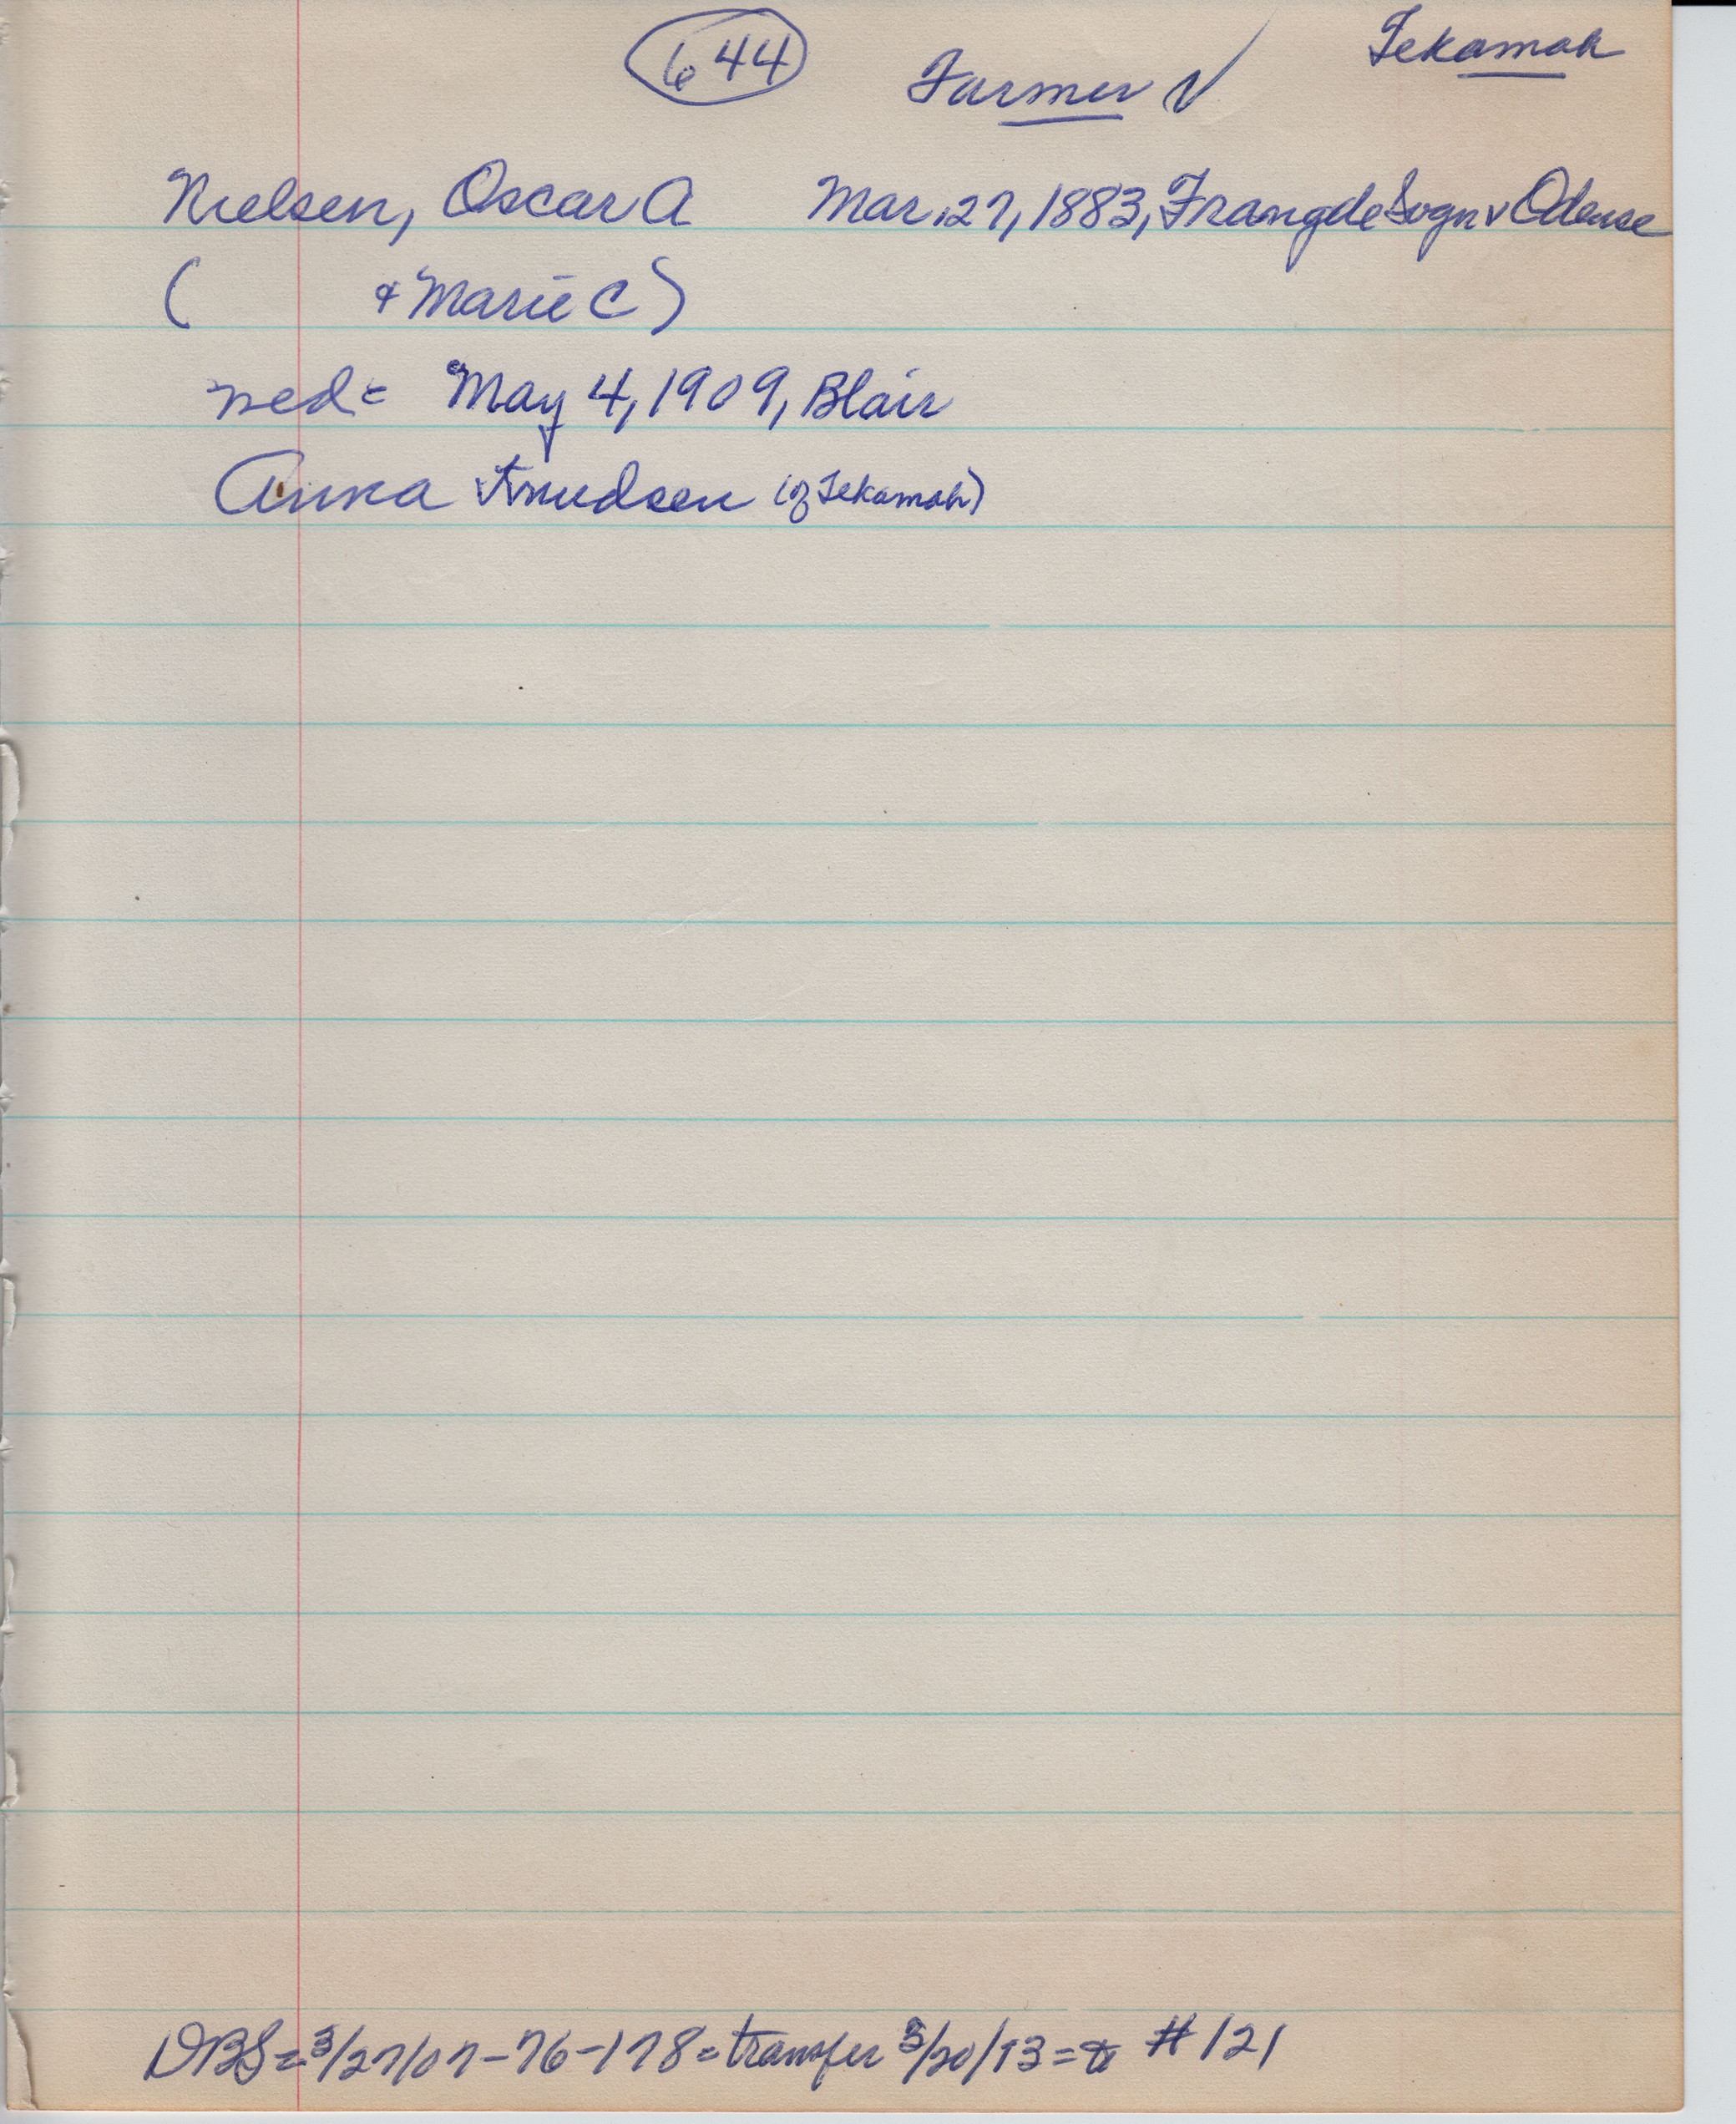 644 Farmer ✓ Tekamah
Nielsen, Oscar A Mar. 27, 1883, Frangde Sogn v Odense
( & Marie C)
wed = May 4, 1909, Blair
Anna Knudsen (of Tekamah)
DBS = 3/27/07-76-178 = transfer 3/20/13 = to #121